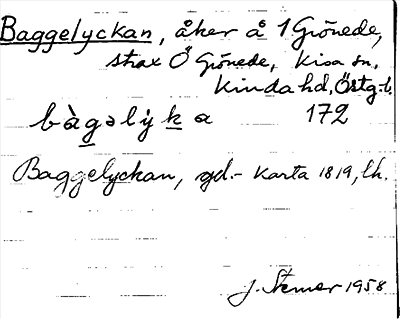 Baggelyckan, åker å 1 Grönede,
strax Ö Grönede, Kisa sn,
Kinda hd, Östg-l.
bàgəlỳka 172
Baggelyckan, gd.- Karta 1819, lh.
J. Stemer 1958